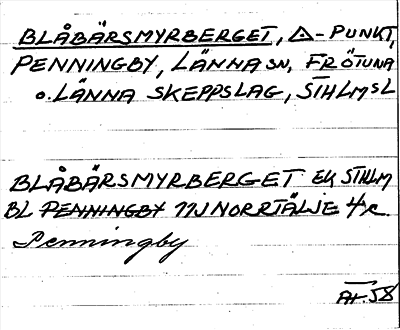 BLÅBÄRSMYRBERGET, △-PUNKT,
PENNINGBY, LÄNNA SN, FRÖTUNA
o. LÄNNA SKEPPSLAG, STHLMS L
BLÅBÄRSMYRBERGET EK STHLM
BL PENNINGBY 11J NORRTÄLJE 4/c
Penningby
Åt. 58